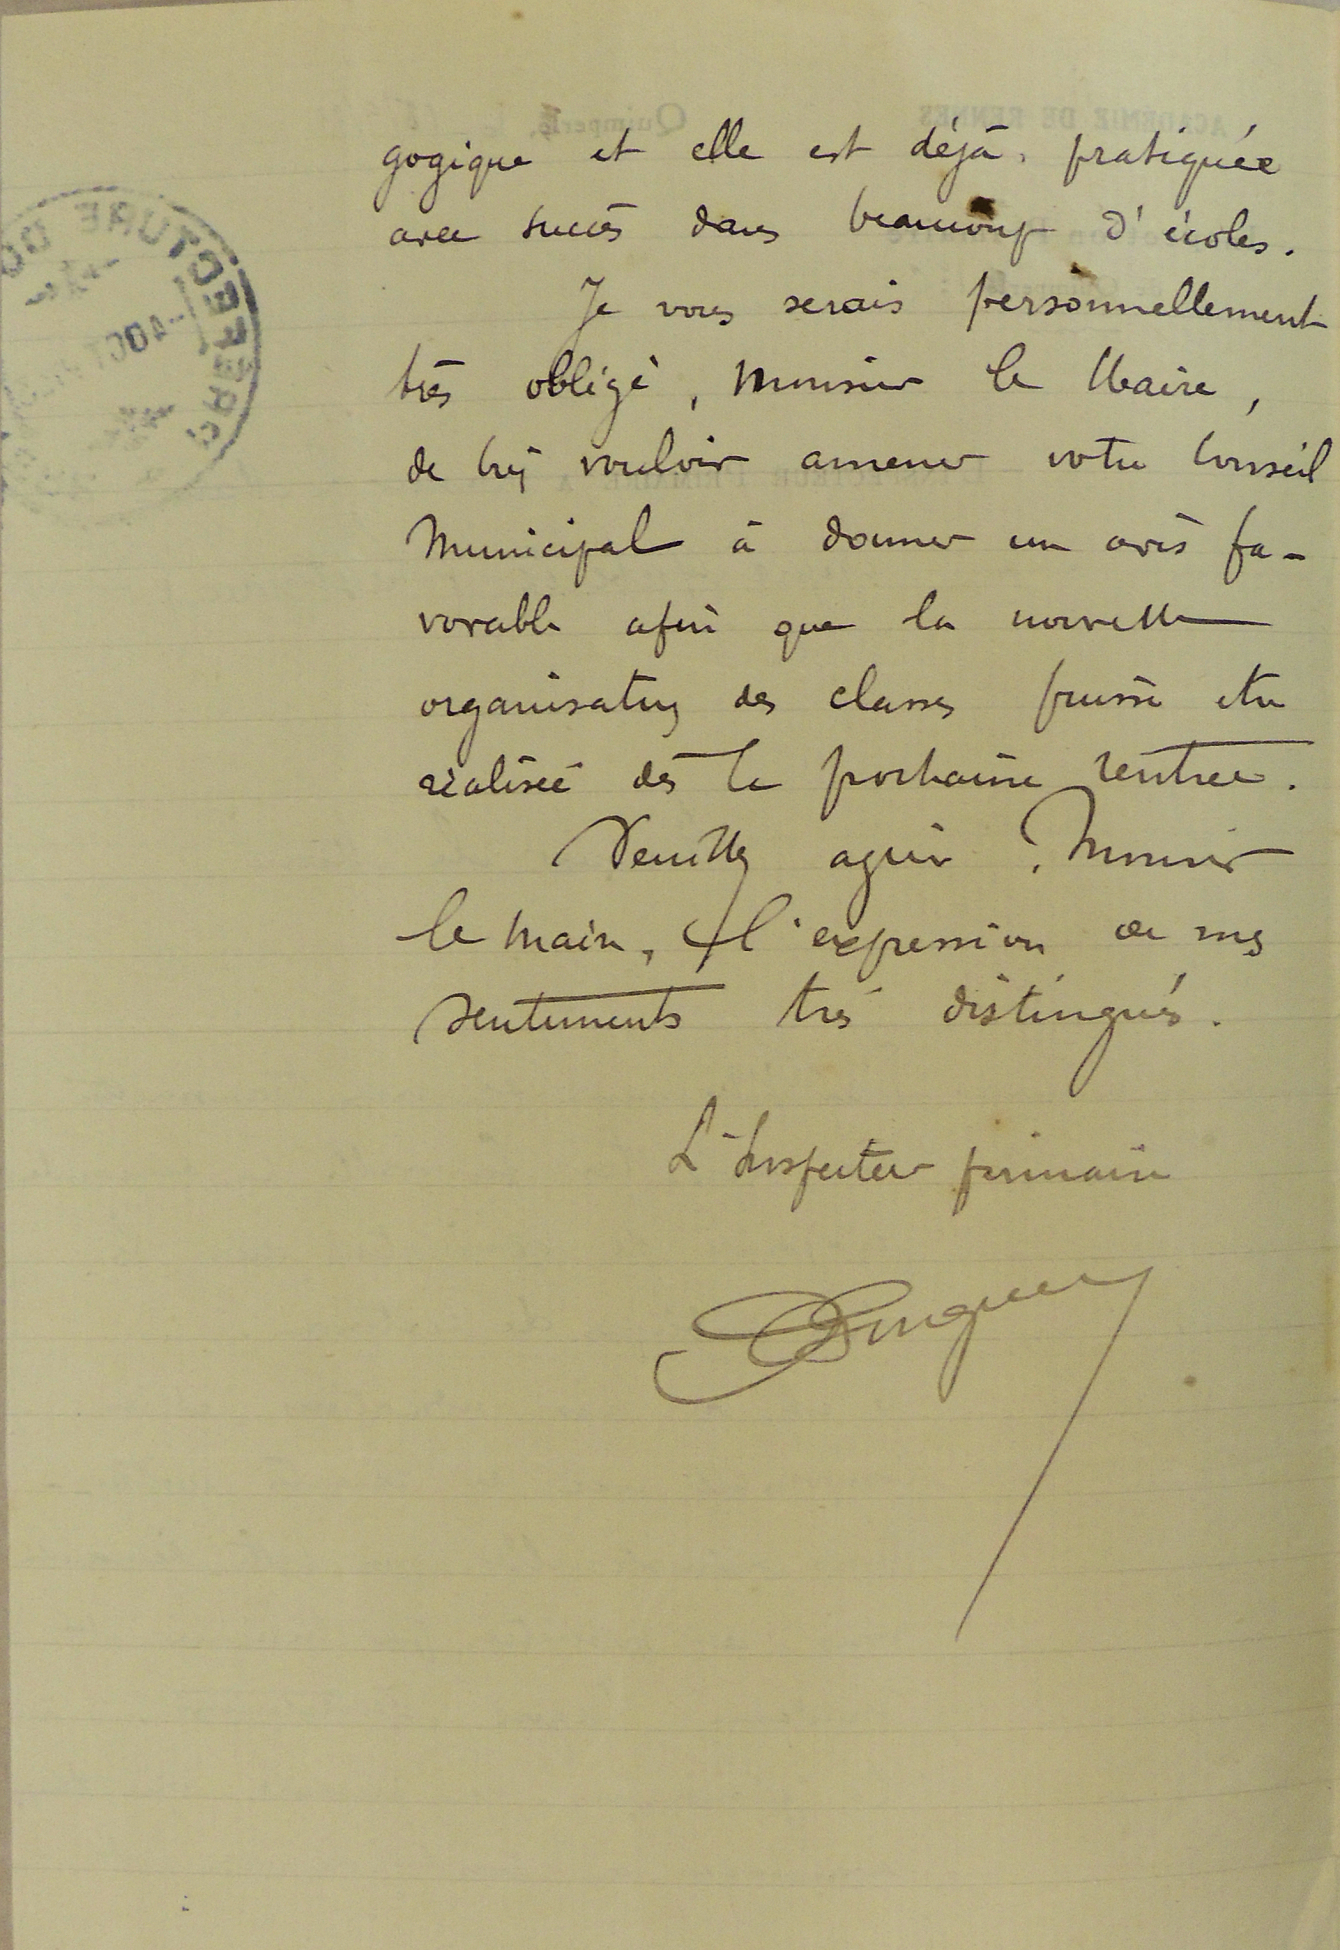 gogique et elle est déjà pratiquée
avec succès dans beaucoup d'écoles.
Je vous serais personnellement
très obligé, Monsieur le Maire,
de bien vouloir amener votre Conseil
Municipal à donner un avis fa-
vorable afin que la nouvelle
organisation des classes puisse être
réalisée dès la prochaine rentrée.
Veuillez agréer, Monsieur
le Maire, l'expression de mes
sentiments très distingués.
L'Inspecteur primaire